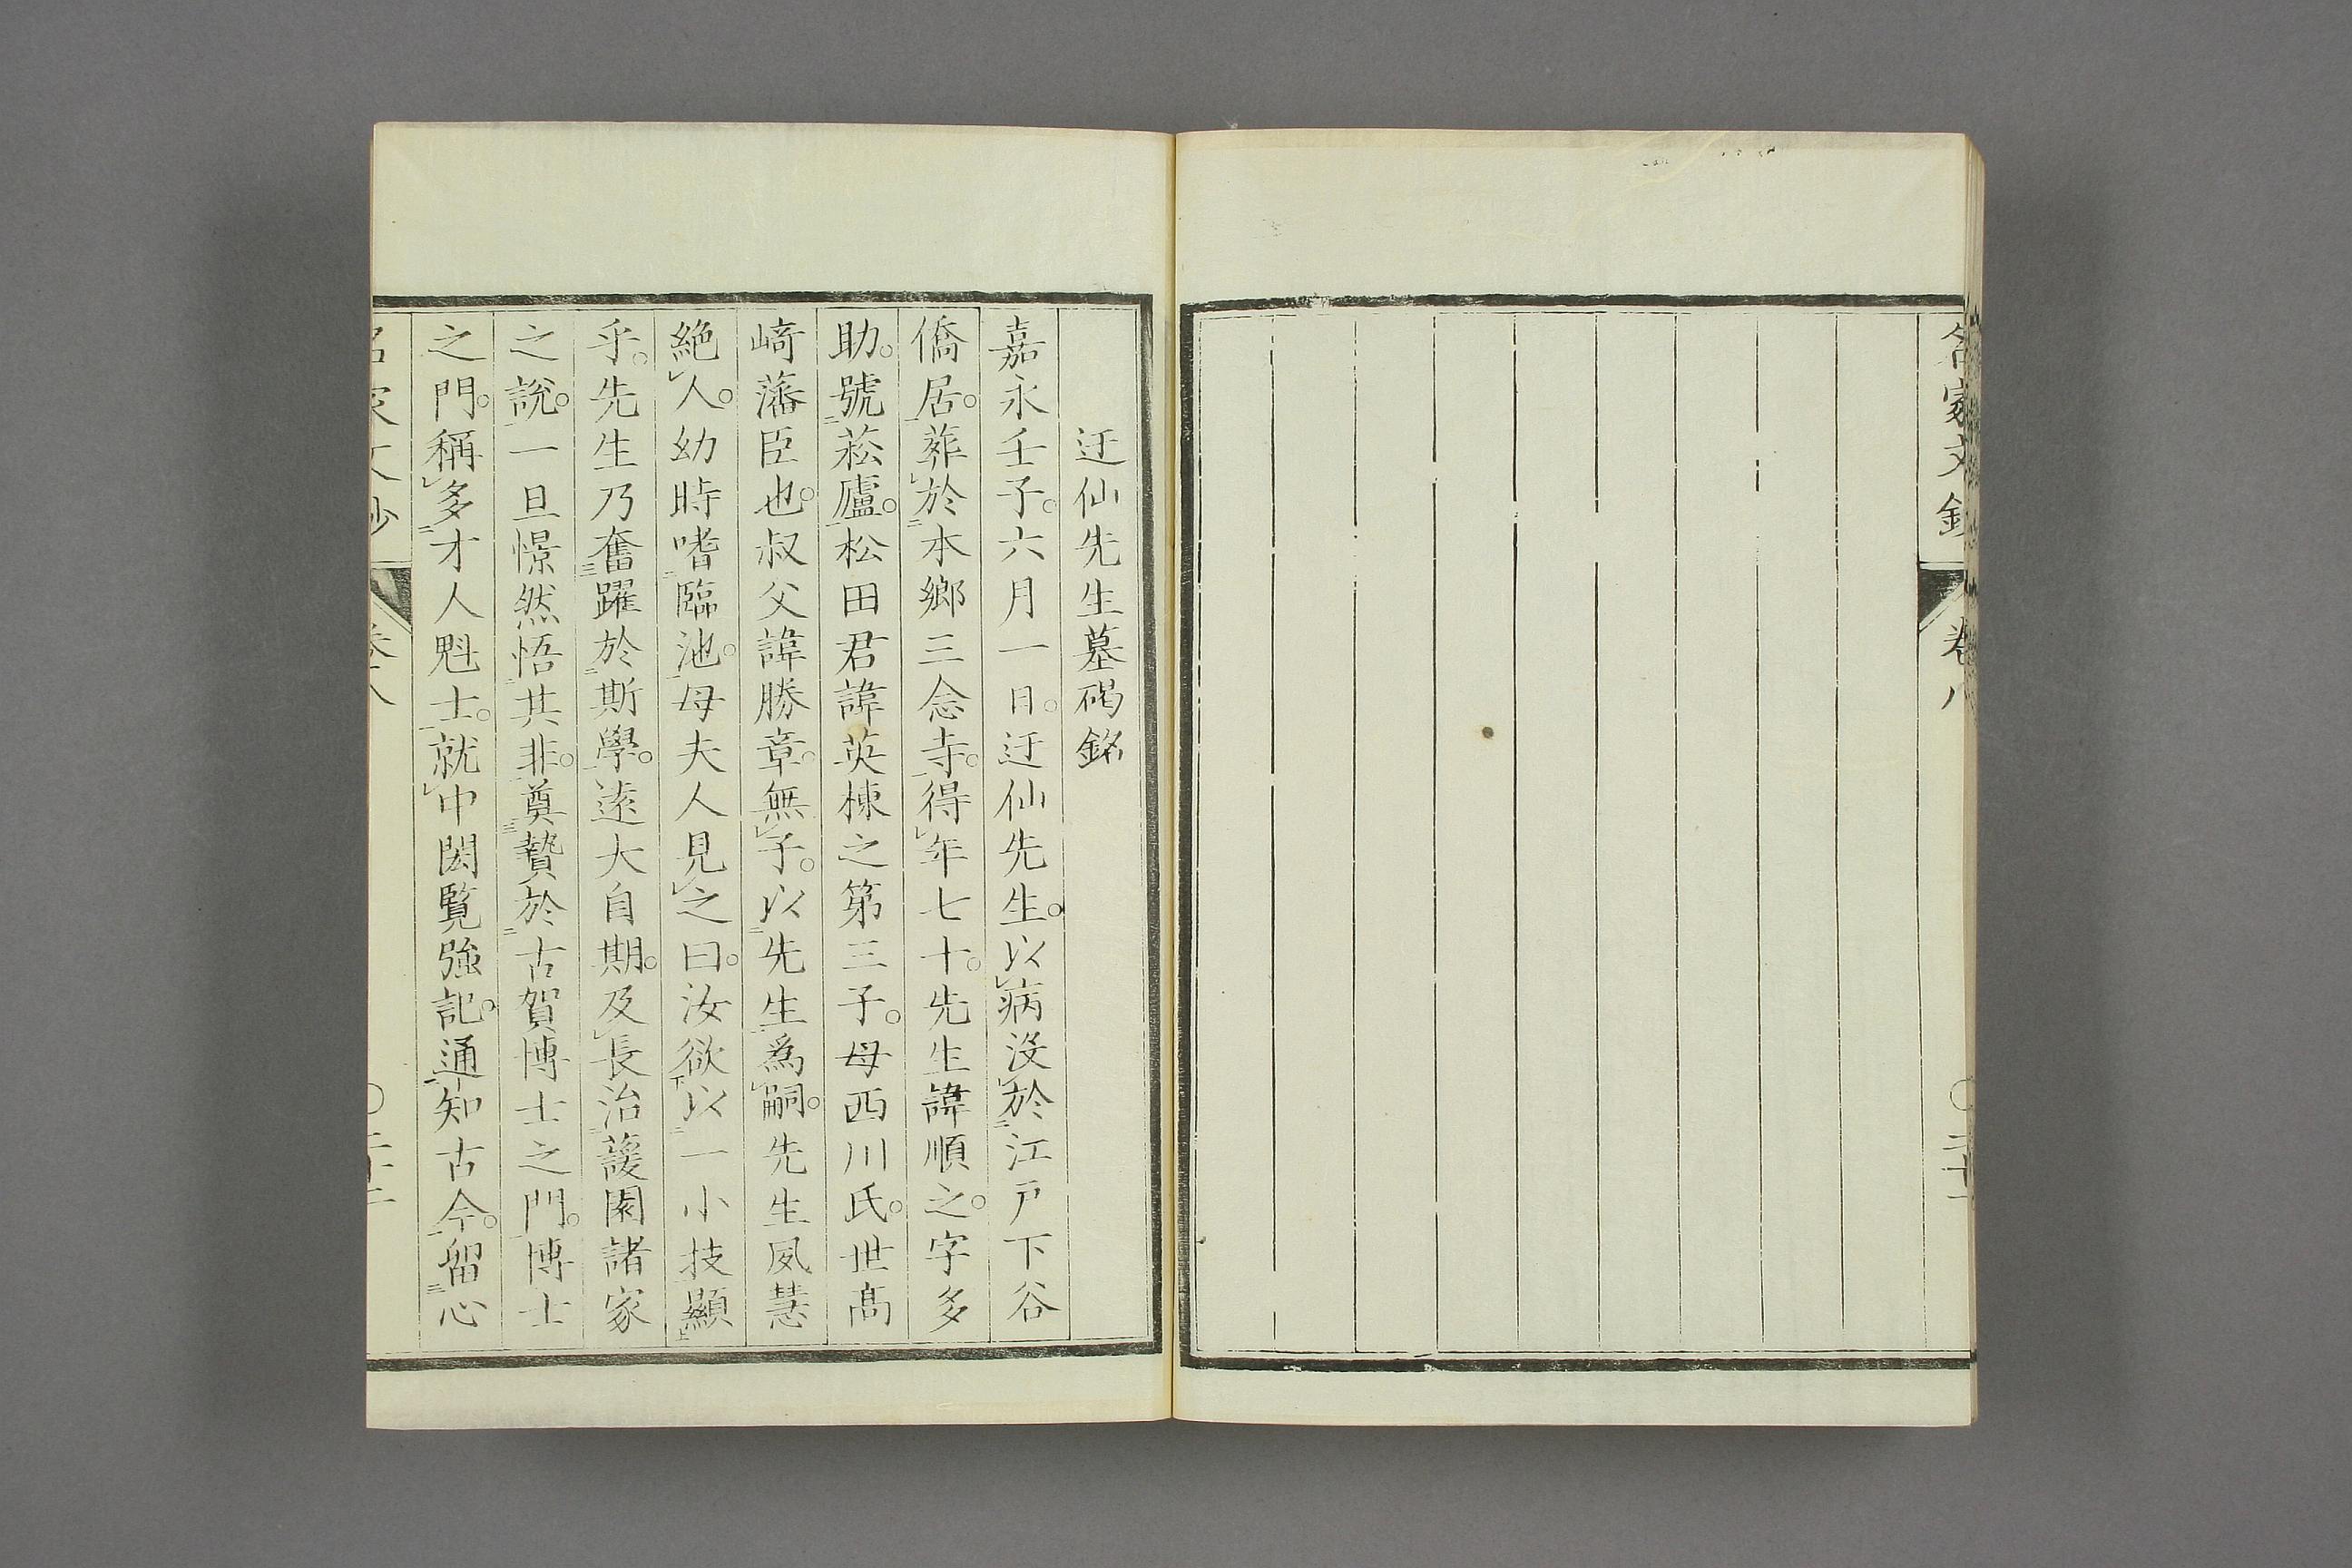 名家文鈔 卷八 ○二十一
迂仙先生墓碣銘
嘉永壬子。六月一日。迂仙先生。以病沒於江戸下谷
僑居。葬於本鄉三念寺。得年七十。先生諱順之。字多
助。號菘廬。松田君諱英棟之第三子。母西川氏。世高
崎藩臣也。叔父諱勝章。無子。以先生爲嗣。先生夙慧
絶人。幼時嗜臨池。母夫人見之曰。汝欲以一小技顯
乎。先生乃奮躍於斯學。遠大自期。及長治蘐園諸家
之說。一旦憬然悟其非。奠贄於古賀博士之門。博士
之門。稱多才人魁士。就中閎覽強記。通知古今。留心
名家文鈔 卷八 ○二十二